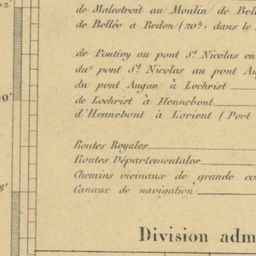 de Malestroit au Moulin de Bel
de Bellée a Redon (20h. dans le
de Pontivy au pont St. Nicolas en
du pont St. Nicolas au pont Au
du pont Augan à Lochrist
de Lochrist à Hennebont
d'Hennebont à Lorient (Port
Routes Royales
Routes Départementales
Chemins vicinaux de grande co
Canaux de navigation
Division adm